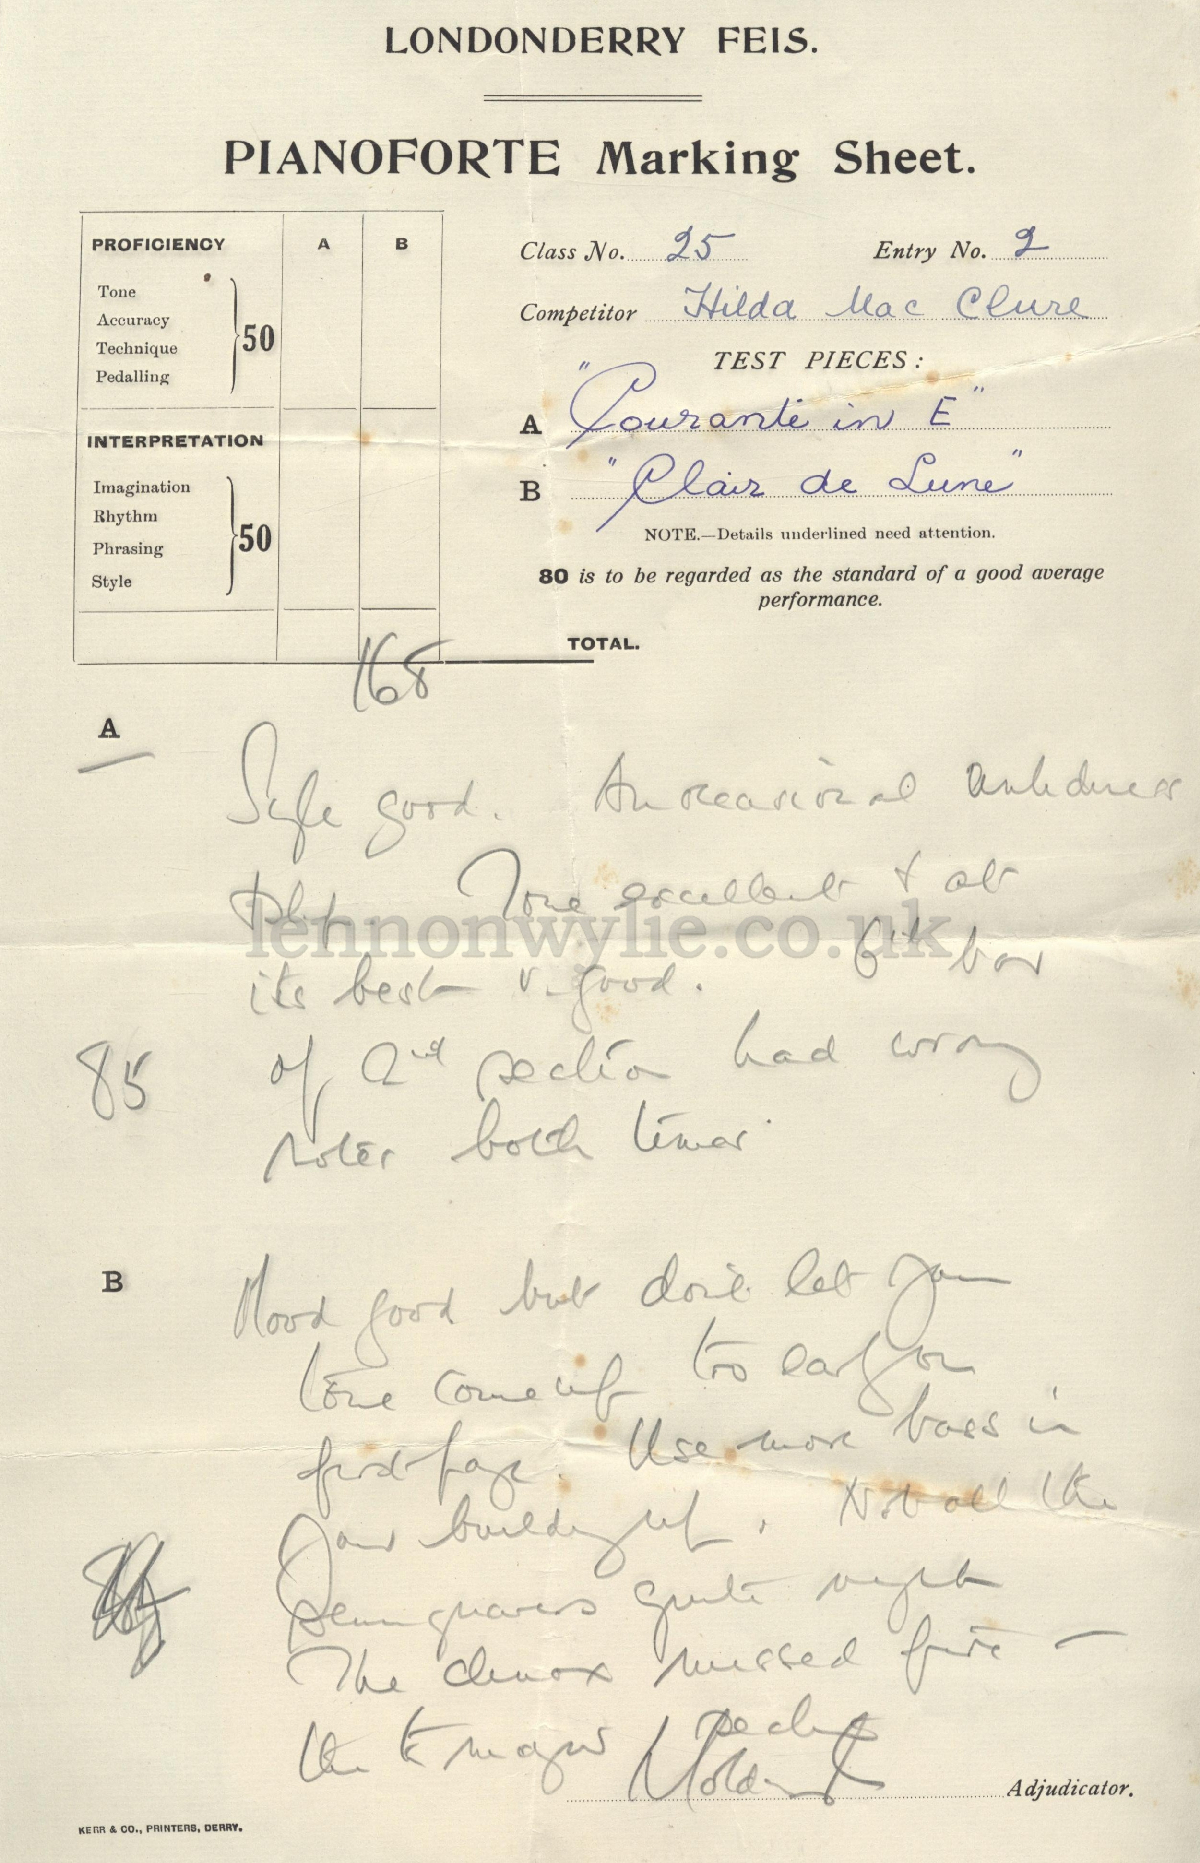 LONDONDERRY FEIS.
PIANOFORTE Marking Sheet.
PROFICIENCY A B
Tone
Accuracy
Technique
Pedalling
50
INTERPRETATION
Imagination
Rhythm
Phrasing
Style
50
Class No. 25 Entry No. 2
Competitor Hilda Mac Clure
TEST PIECES:
A "Courante in E"
B "Clair de Lune"
NOTE.—Details underlined need attention.
80 is to be regarded as the standard of a good average
performance.
TOTAL.
168
A
Style good. An occasional untidiness
Tone excellent & at
lennonwylie.co.uk
its best v. good. 6th bar
85 of 2nd section had wrong
notes both times.
B Mood good but don't let your
tone come up too early on
first page. Use more bass in
your building up. Not all the
semiquavers quite right
The climax missed fire —
the E major section
Adjudicator.
KERR & CO., PRINTERS, DERRY.